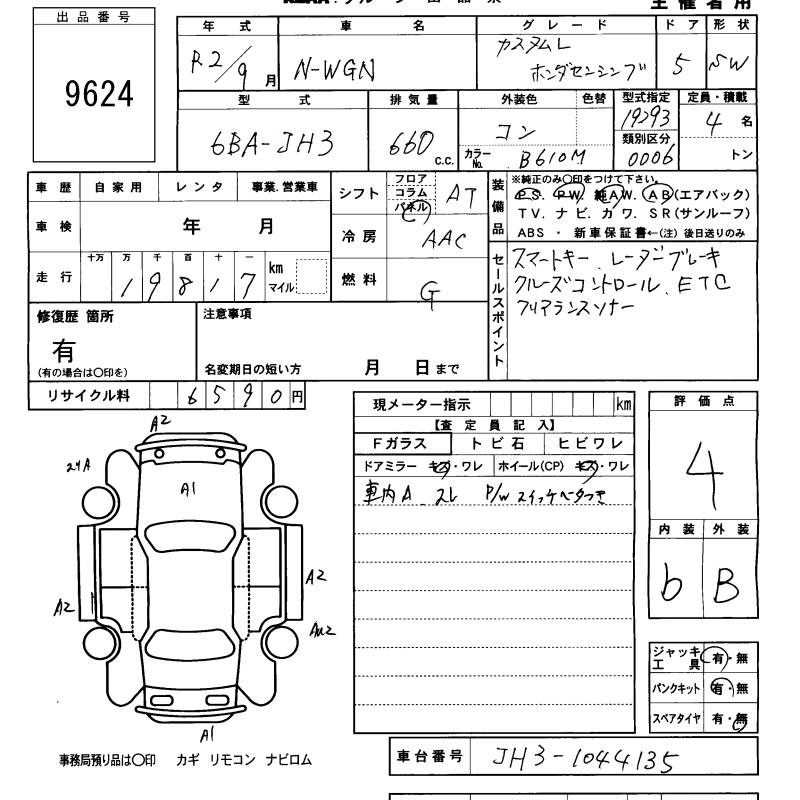 出品番号
9624
年式 車名 グレード ドア 形状
R2/9月 N-WGN カスタムL ホンダセンシング 5 SW
型式 排気量 外装色 色替 型式指定 定員・積載
6BA-JH3 660 c.c. コン 19293 4名
類別区分
カラーNo. B610M 0006 トン
車歴 自家用 レンタ 事業.営業車
車検 年 月
走行 十万 万 千 百 十 一
19817 km マイル
シフト フロア コラム パネル AT
冷房 AAC
燃料 G
装備品
※純正のみ〇印をつけて下さい。
PS. PW. 純AW. AB(エアバック)
TV. ナビ. カワ. SR(サンルーフ)
ABS ・ 新車保証書←(注) 後日送りのみ
セールスポイント
スマートキー、レーダーブレーキ
クルーズコントロール、ETC
クリアランスソナー
修復歴 箇所
有
(有の場合は〇印を)
注意事項
名変期日の短い方 月 日まで
リサイクル料 6590円
A2
A1
A2
A2
A1
現メーター指示 km
【査定員記入】
Fガラス トビ石 ヒビワレ
ドアミラー キズ・ワレ ホイール(CP) キズ・ワレ
車内A
評価点
4
内装 外装
b B
ジャッキ工具 有・無
パンクキット 有・無
スペアタイヤ 有・無
事務局預り品は〇印 カギ リモコン ナビロム
車台番号 JH3-1044135